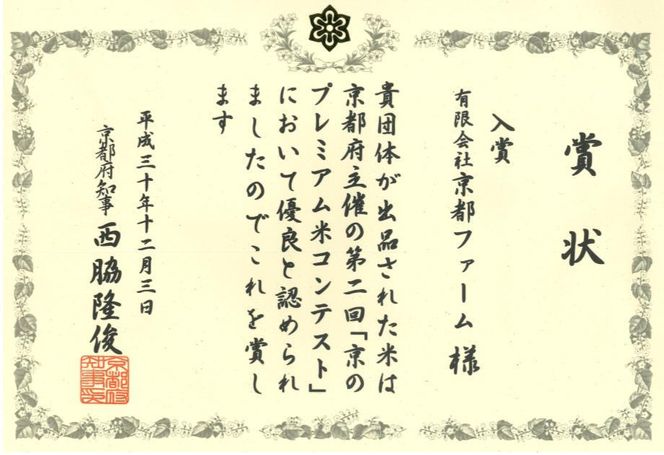 賞状
入賞
有限会社京都ファーム様
貴団体が出品された米は
京都府主催の第二回「京の
プレミアム米コンテスト」
において優良と認められ
ましたのでこれを賞し
ます
平成三十年十二月三日
京都府知事 西脇隆俊
京都府
知事之印